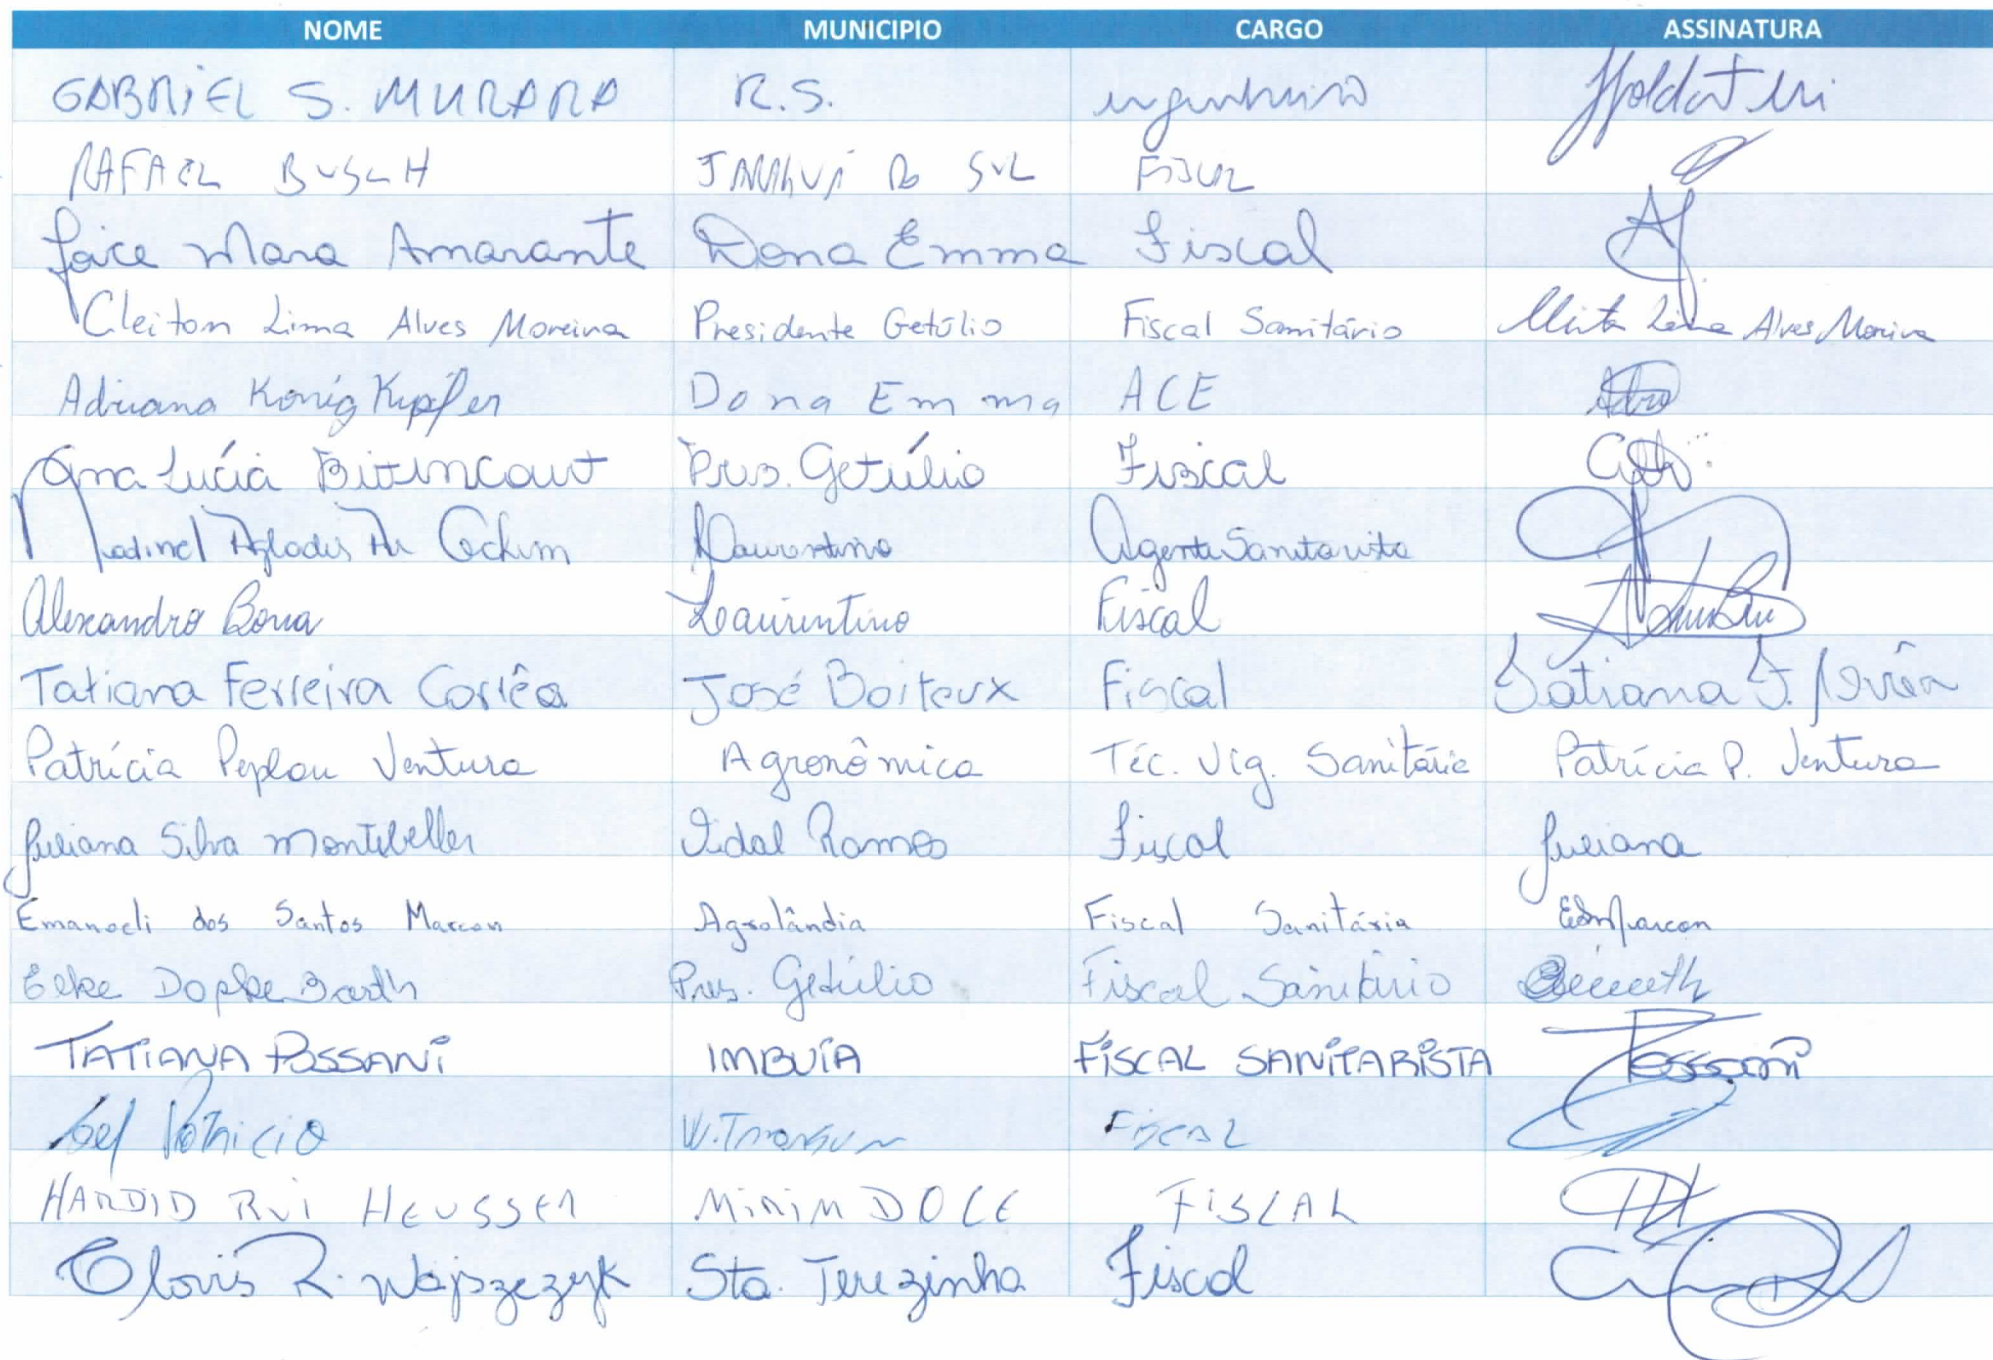 NOME MUNICIPIO CARGO ASSINATURA
GABRIEL S. MURARA R.S. engenheiro
RAFAEL BUSCH JARAGUÁ DO SUL FISCAL
Joice Mara Amarante Dona Emma Fiscal
Cleiton Lima Alves Moreira Presidente Getúlio Fiscal Sanitário Lima Alves Moreira
Adriana Konig Kupfer Dona Emma ACE
Ana Lúcia Bittincourt Pres. Getúlio Fiscal
Laurentino Agente Sanitarista
Alexandro Bona Laurentino Fiscal
Tatiana Ferreira Corrêa José Boiteux Fiscal Tatiana F. Corrêa
Patrícia Peplau Ventura Agronômica Téc. Vig. Sanitária Patrícia P. Ventura
Juliana Silva Montibeller Vidal Ramos Fiscal Juliana
Emanoeli dos Santos Marcon Agrolândia Fiscal Sanitária
Elke Dopke Barth Pres. Getúlio Fiscal Sanitário
TATIANA POSSANI IMBUIA FISCAL SANITARISTA Possani
Patricio FISCAL
RUI HEUSSER MIRIM DOCE FISCAL
Clovis R. Wojszczyk Sta. Terezinha Fiscal